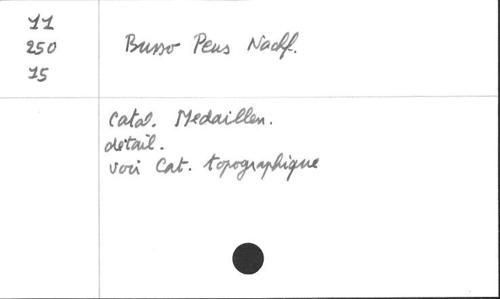 11
250
15
Busso Peus Nachf.
Catal. Medaillen.
detail.
voir Cat. topographique